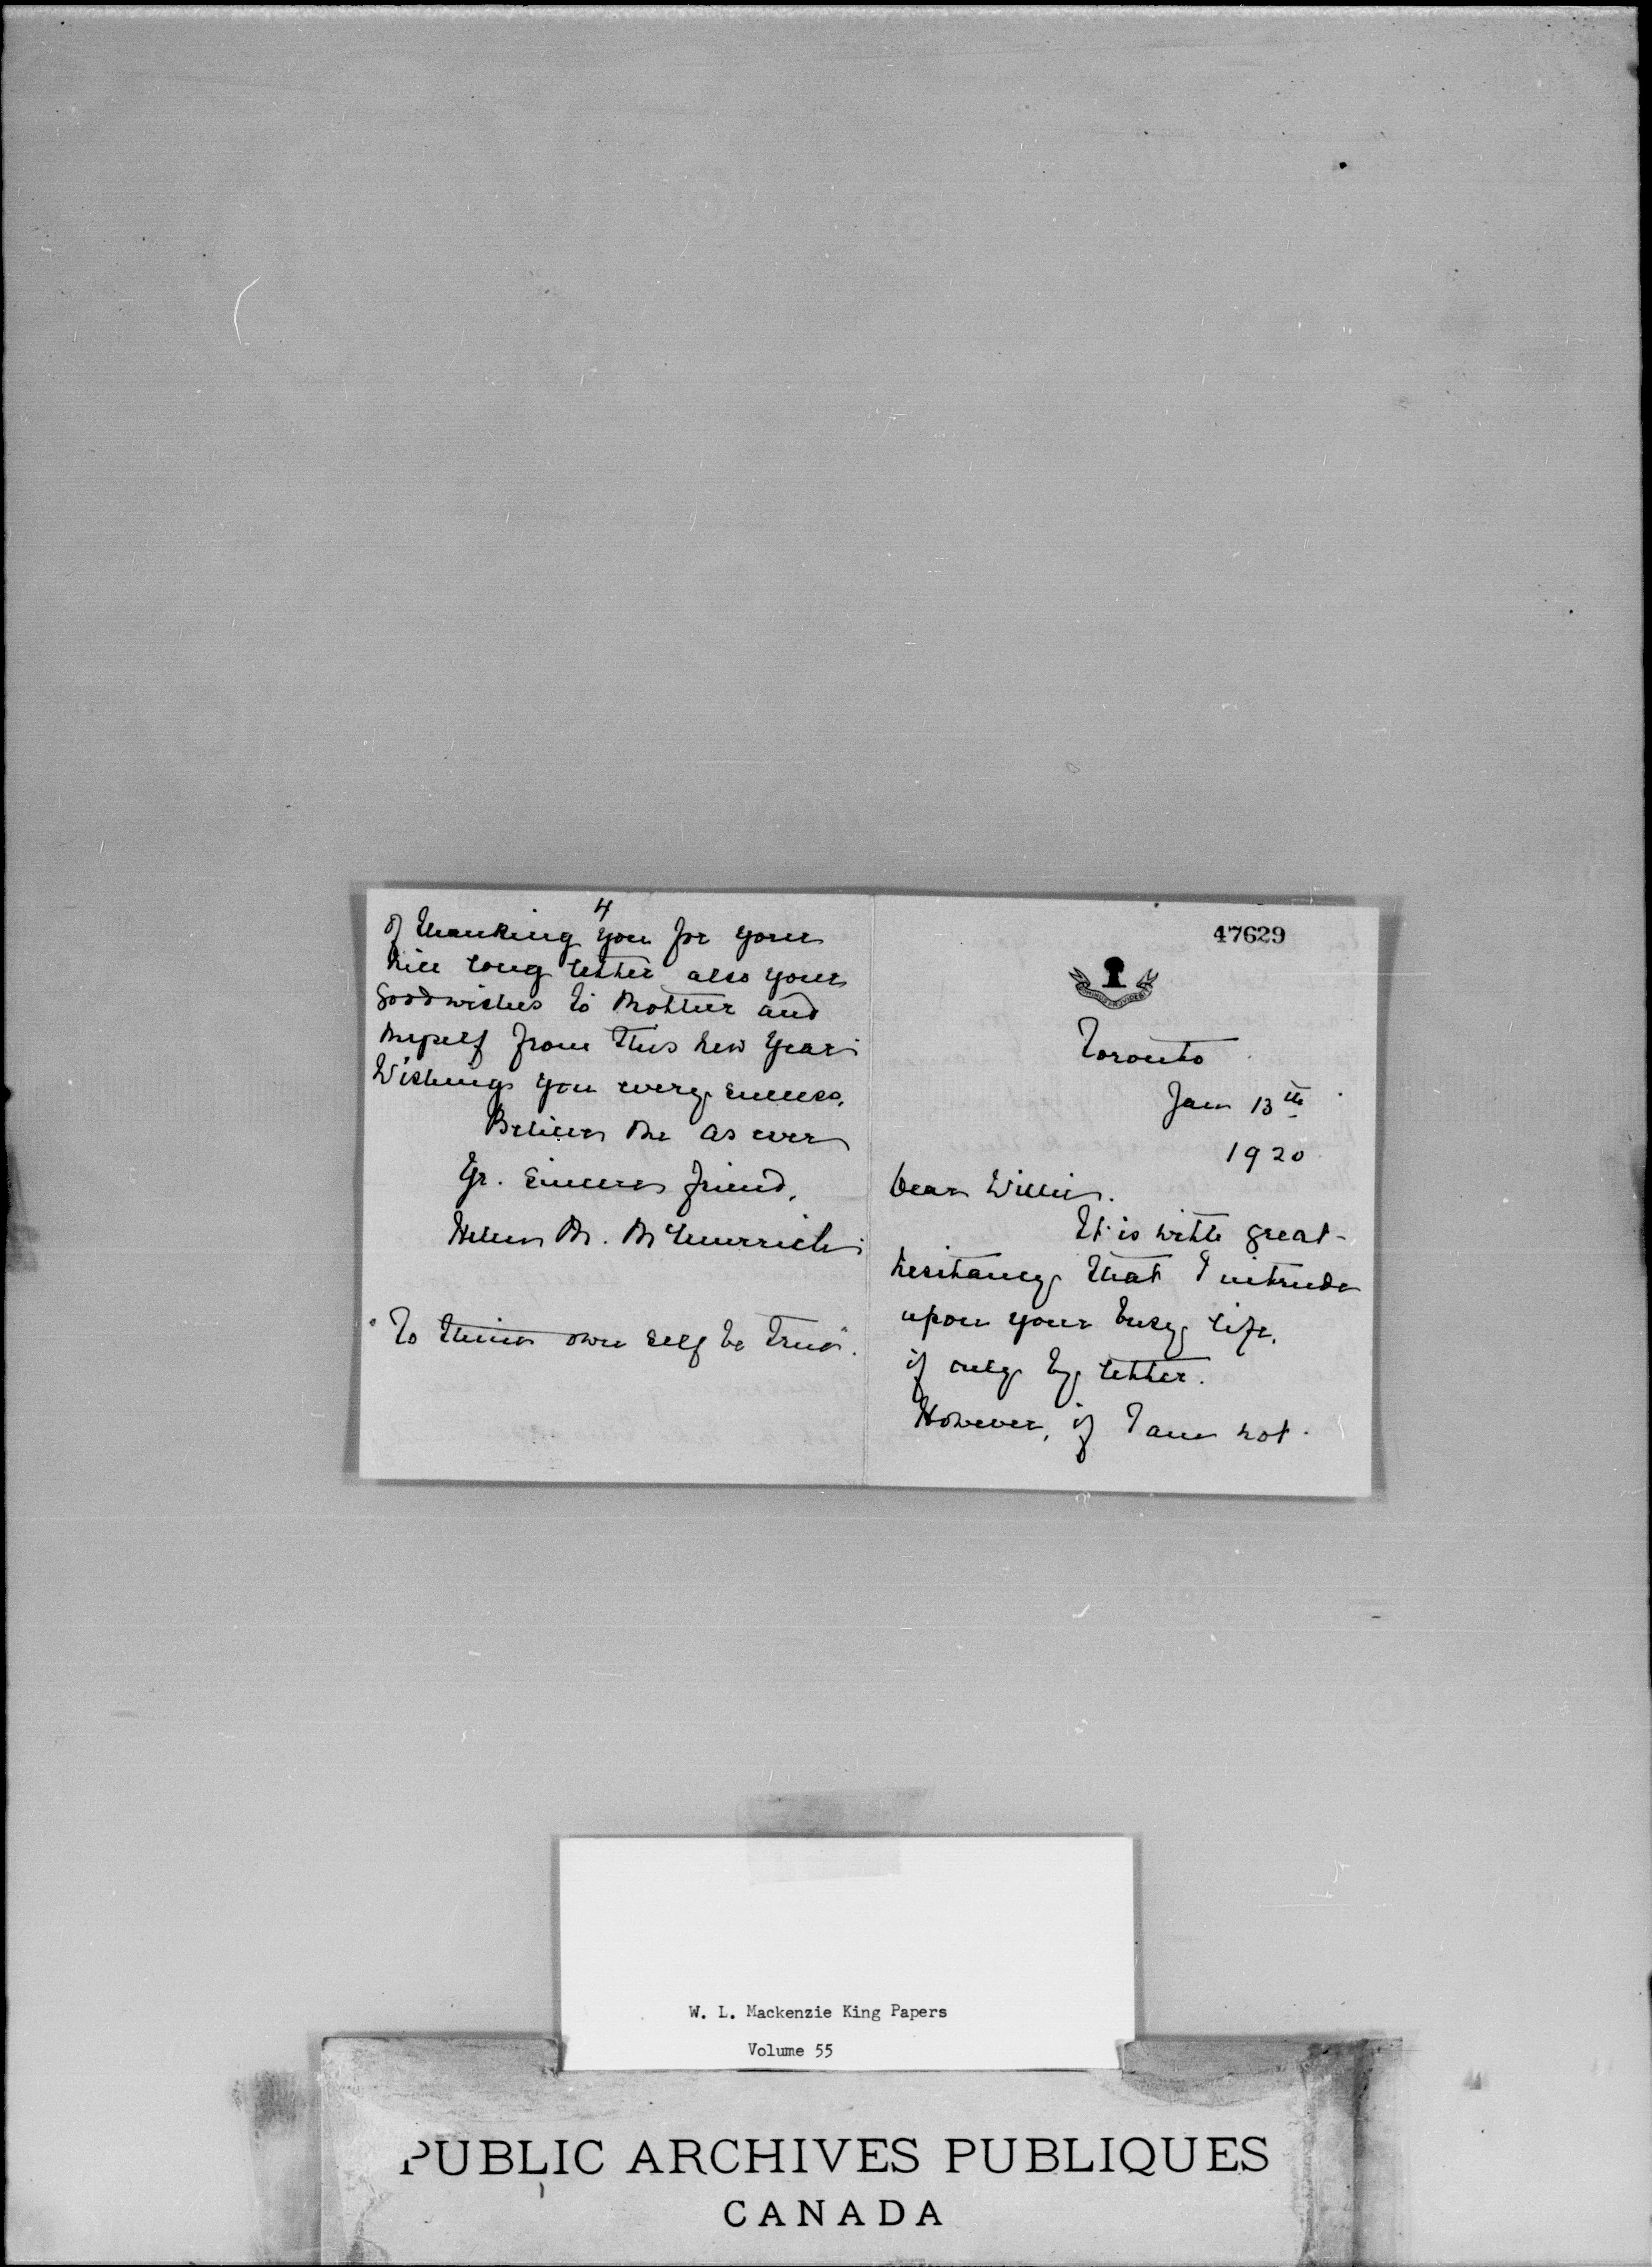 4
of thanking you for your
nice long letter also your
goodwishes to Mother and
myself from this new year
Wishing you every success,
Believe me as ever
Yr. sincere friend,
Helen M. McMurrich
"To thine own self be true".
47629
Toronto
Jan 13th
1920
Dear Willie.
It is with great
hesitancy that I intrude
upon your busy life,
if only by letter.
However, if I am not
W. L. Mackenzie King Papers
Volume 55
PUBLIC ARCHIVES PUBLIQUES
CANADA